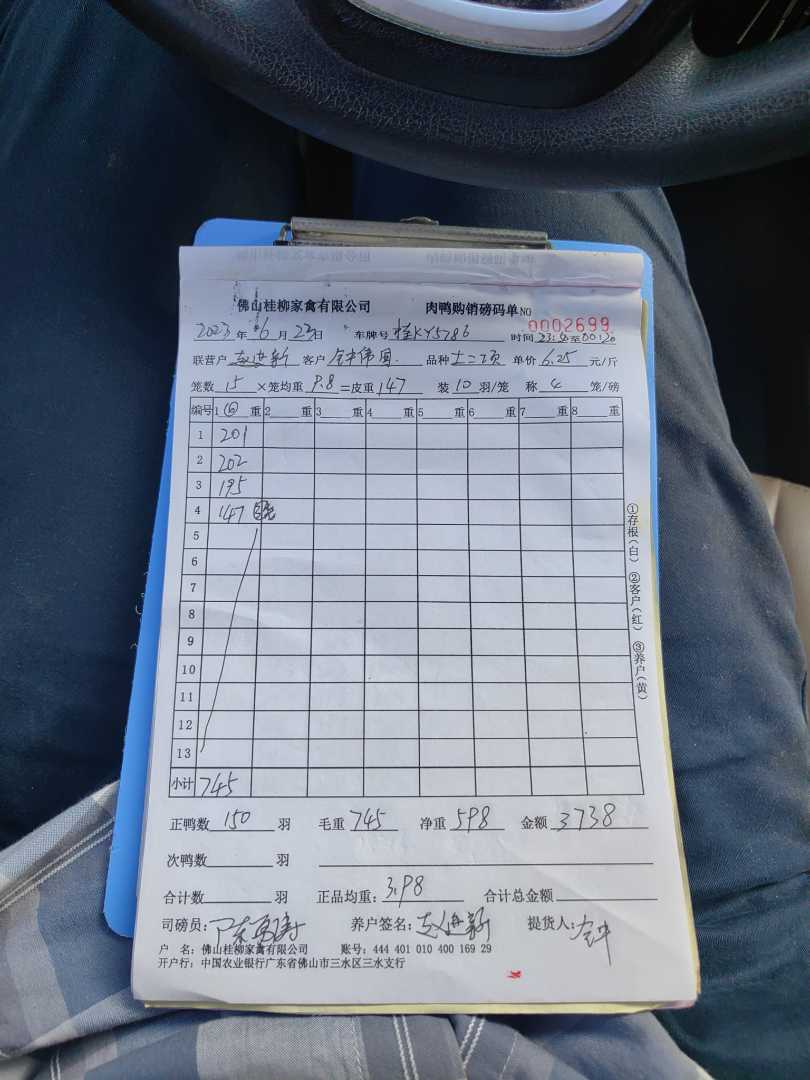 佛山桂柳家禽有限公司 肉鸭购销磅码单 NO 0002699
2023 年 6 月 23 日 车牌号 桂KY5786 时间 至 00:20
联营户 客户 钟伟国 品种 单价 6.25 元/斤
笼数 15 ×笼均重 9.8 =皮重 147 装 10 羽/笼 称 4 笼/磅
编号 1 重 2 重 3 重 4 重 5 重 6 重 7 重 8 重
1 201
2 202
3 195
4 147
5
6
7
8
9
10
11
12
13
小计 745
①存根(白) ②客户(红) ③养户(黄)
正鸭数 150 羽 毛重 745 净重 598 金额 3738
次鸭数 羽
合计数 羽 正品均重: 3.98 合计总金额
司磅员: 养户签名: 提货人:
户 名: 佛山桂柳家禽有限公司 账号: 444 401 010 400 169 29
开户行: 中国农业银行广东省佛山市三水区三水支行